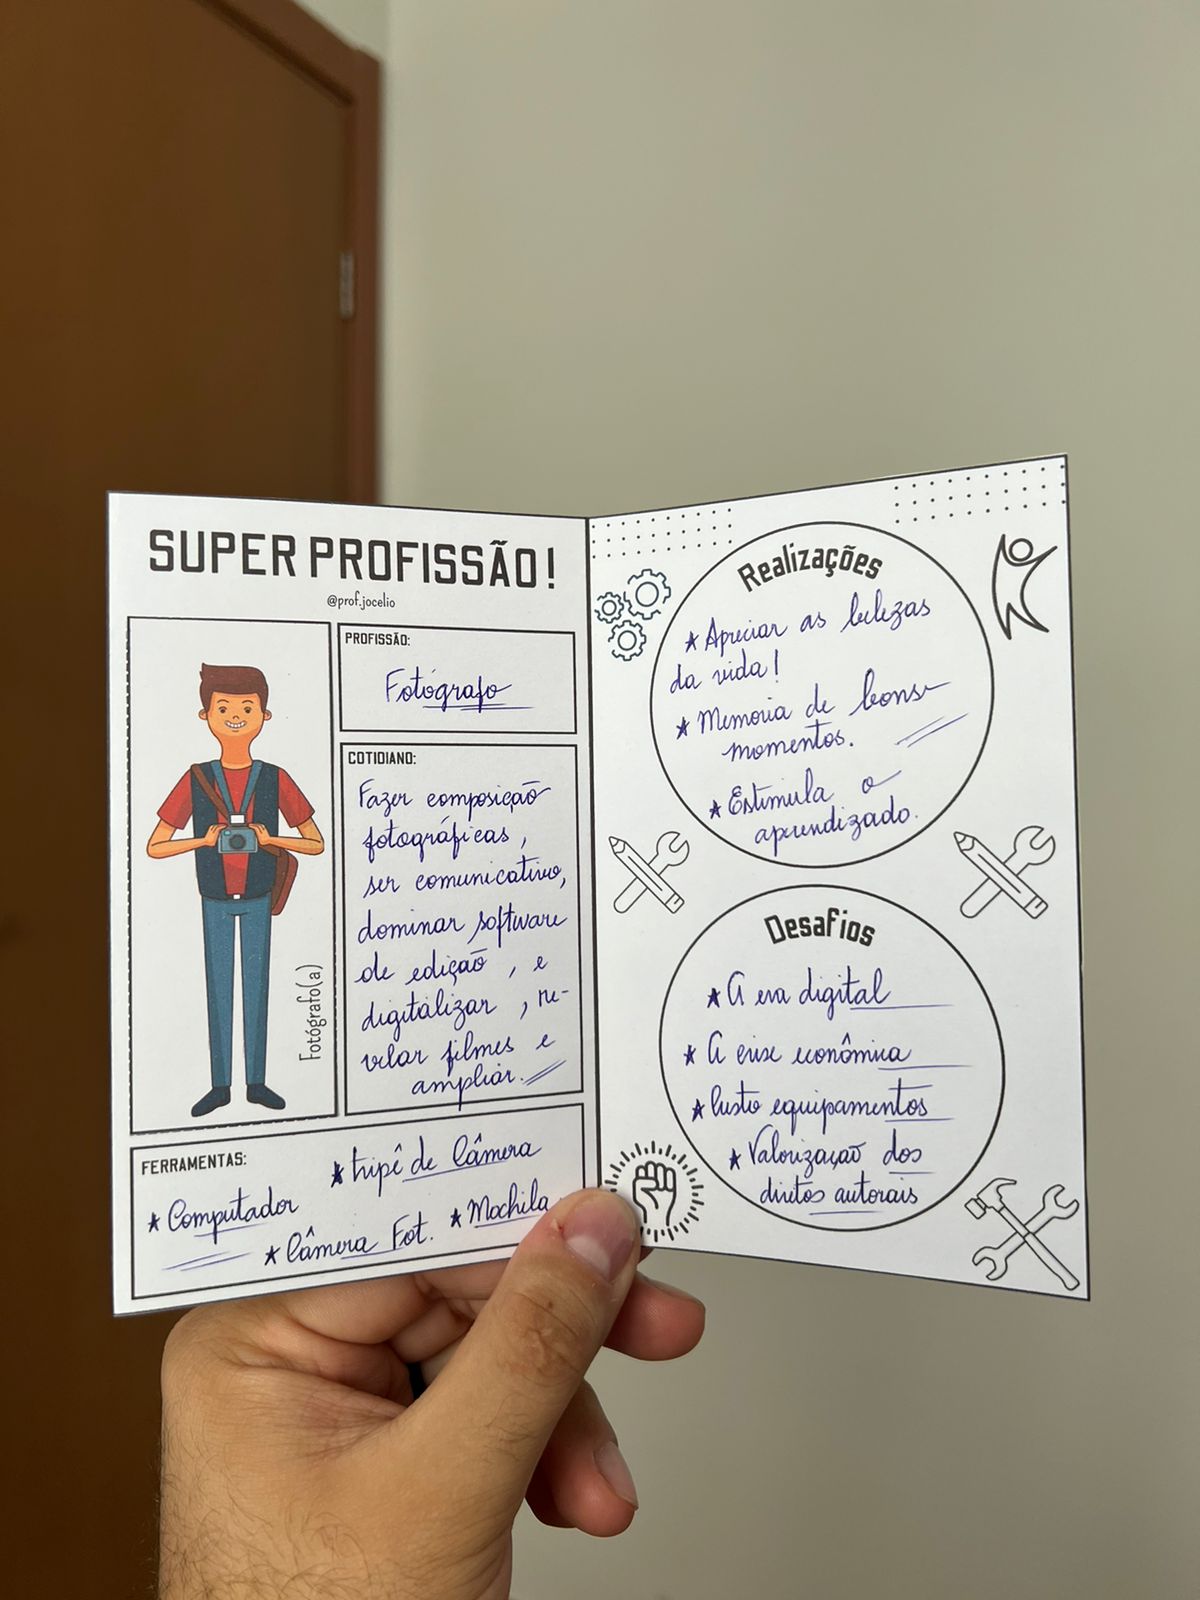 SUPER PROFISSÃO!
@prof.jocelio
Fotógrafo(a)
PROFISSÃO:
Fotógrafo
COTIDIANO:
Fazer composição
fotográficas,
ser comunicativo,
dominar software
de edição, e
digitalizar, re-
velar filmes e
ampliar.
FERRAMENTAS:
★ tripê de Câmera
★ Computador
★ Mochila
★ Câmera Fot.
Realizações
★ Apreciar as belezas
da vida!
★ Memoria de bons
momentos.
★ Estimula o
aprendizado.
Desafios
★ A era digital
★ A crise econômica
★ Custo equipamentos
★ Valorização dos
direitos autorais